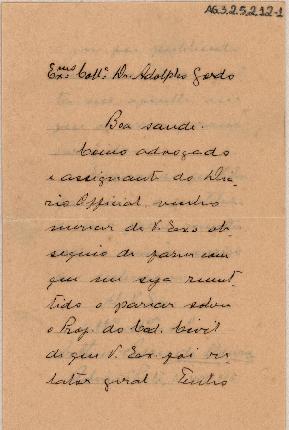 AG3.2.5.2.12-1
Exmo Coll.ª Dr. Adolpho Gordo
Boa saude.
Como advogado
e assignante do Dia-
rio Official venho
merecer de V. Exa ob-
sequio de fazer com
que me seja remet-
tido o parecer sobre
o Proj. do Cod. Civil
de que V. Exa. foi re-
lator geral. Tenho